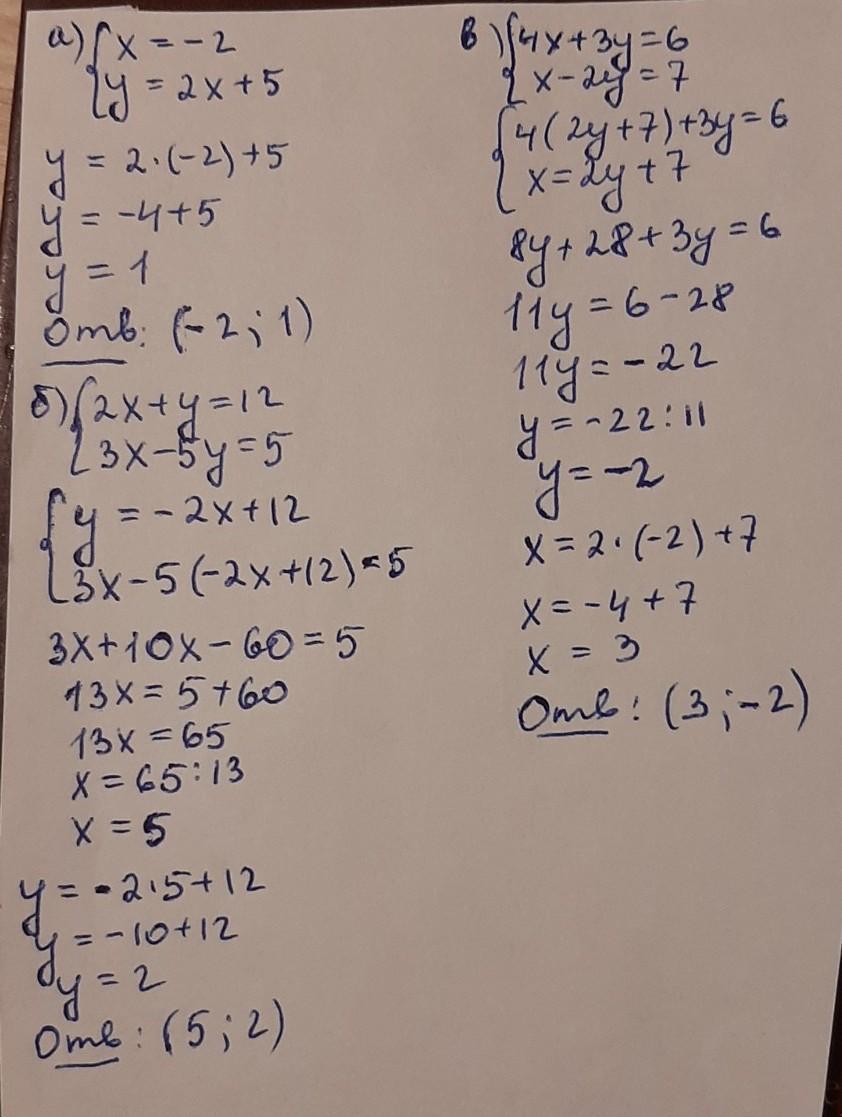 а) { x = -2
y = 2x + 5
y = 2·(-2)+5
y = -4+5
y = 1
Отв: (-2; 1)
б) { 2x+y=12
3x-5y=5
{ y = -2x+12
3x-5(-2x+12)=5
3x+10x-60=5
13x=5+60
13x=65
x=65:13
x=5
y=-2·5+12
y=-10+12
y=2
Отв: (5; 2)
в) { 4x+3y=6
x-2y=7
{ 4(2y+7)+3y=6
x=2y+7
8y+28+3y=6
11y=6-28
11y=-22
y=-22:11
y=-2
x=2·(-2)+7
x=-4+7
x=3
Отв: (3; -2)